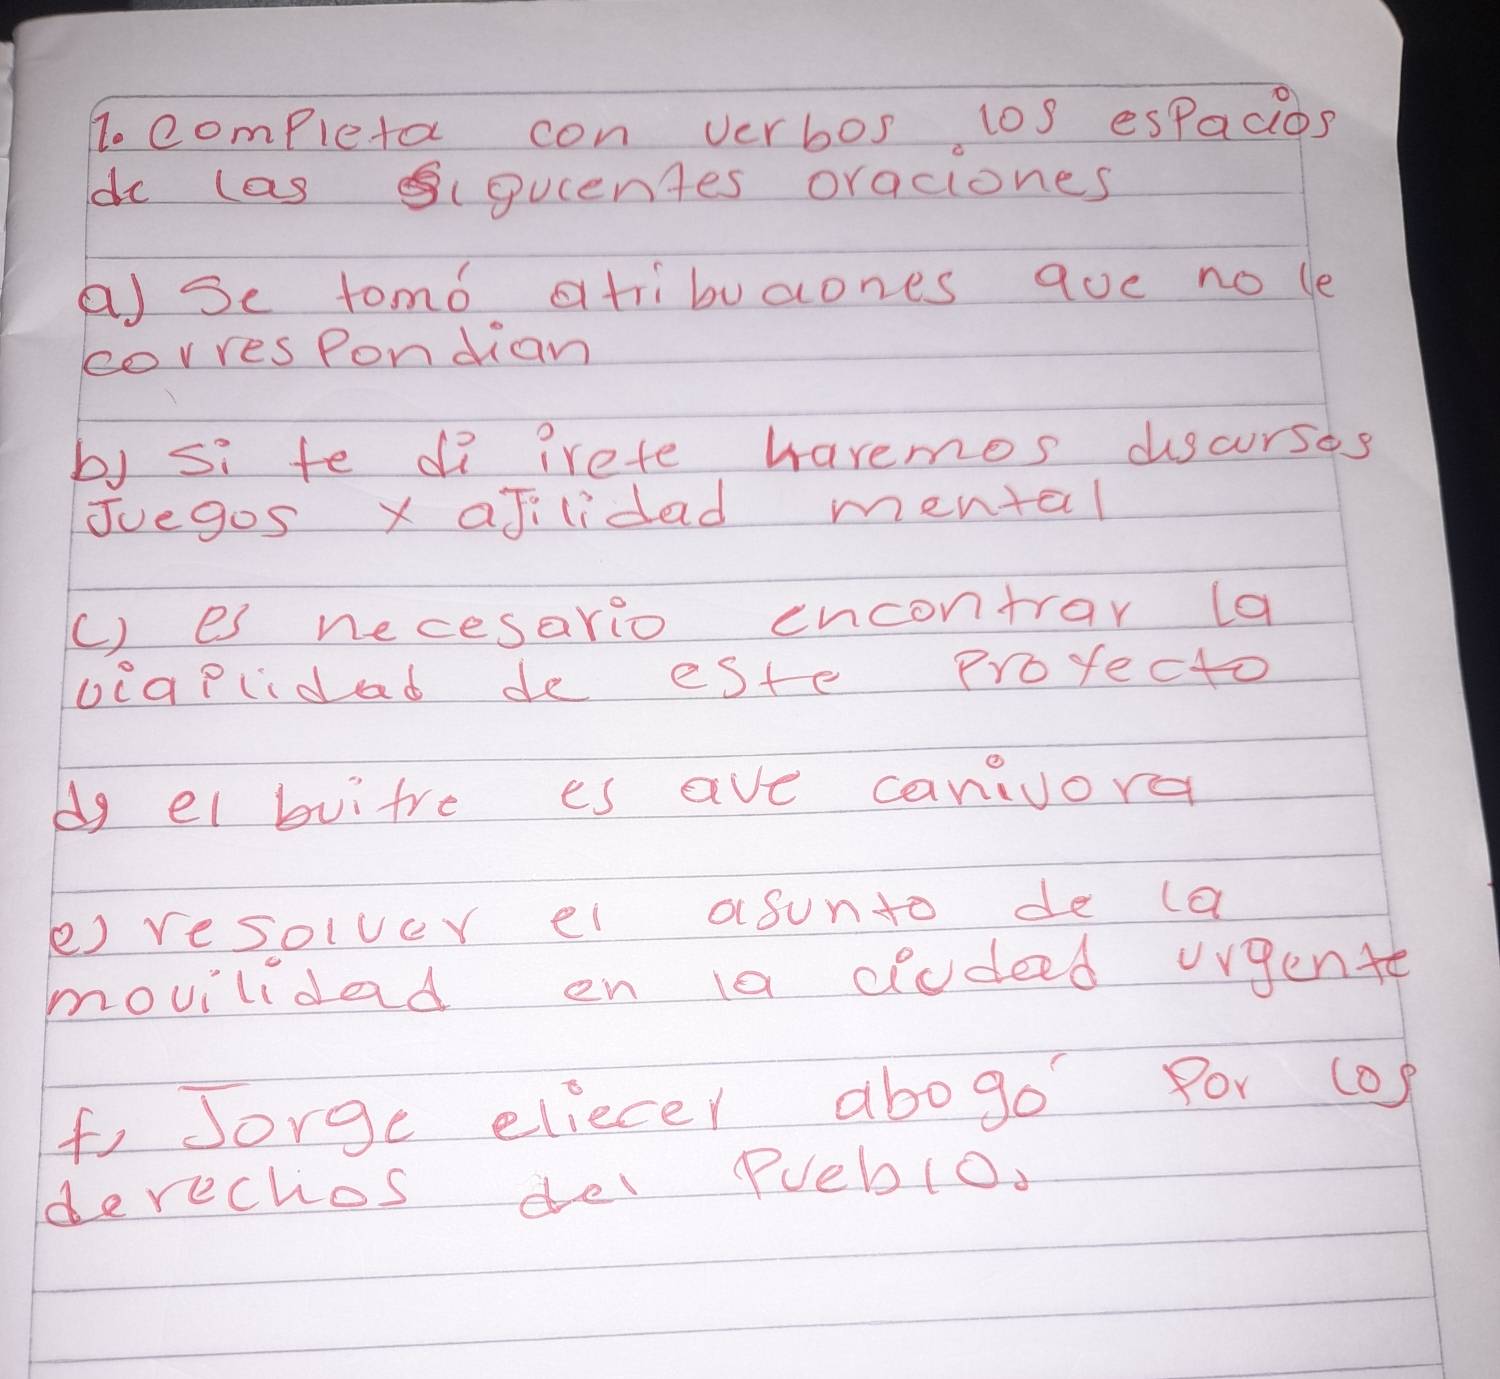 1. completa con verbos los espacios
de las siguientes oraciones
a) se tomó atribuciones que no le
correspondian
b) si te di irete haremos discursos
Juegos y aJilidad mental
c) es necesario encontrar la
viaplidad de este proyecto
d) el buitre es ave canivora
e) resolver el asunto de la
movilidad en la ciudad urgente
f) Jorge eliecer abogó por los
derechos del pueblo.